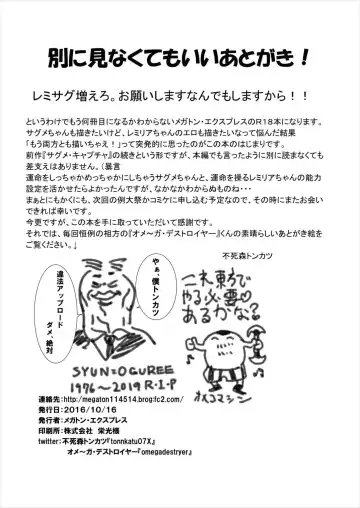 別に見なくてもいいあとがき！
レミサグ増えろ。お願いしますなんでもしますから！！
というわけでもう何冊目になるかわからないメガトン・エクスプレスのR18本になります。
サグメちゃんも描きたいけど、レミリアちゃんのエロも描きたいなって悩んだ結果
「もう両方とも描いちゃえ！」って突発的に思ったのがこの本のはじまりです。
前作『サグメ・キャプチャ』の続きという形ですが、本編でも言ったように別に読まなくても
差支えはありません。（暴言
運命をしっちゃかめっちゃかにしちゃうサグメちゃんと、運命を操るレミリアちゃんの能力
設定を活かせたらよかったんですが、なかなかわからぬものね・・・
まぁとにもかくにも、次回の例大祭かコミケに申し込む予定なので、その時にまたお会い
できれば幸いです。
今更ですが、この本を手に取っていただいて感謝です。
それでは、毎回恒例の相方の『オメ～ガ・デストロイヤー』くんの素晴らしいあとがき絵を
ご覧ください。」
不死森トンカツ
やぁ、僕トンカツ
違法アップロード
ダメ、絶対
これ東方で
やる必要
あるかな？
SYUN=OGUREE
1976～2019 R・I・P
オメコマシン
連絡先:http://megaton114514.brog.fc2.com/
発行日:2016/10/16
発行者:メガトン・エクスプレス
印刷所:株式会社　栄光様
twitter:不死森トンカツ『tonnkatu07X』
オメ～ガ・デストロイヤー『omegadestryer』